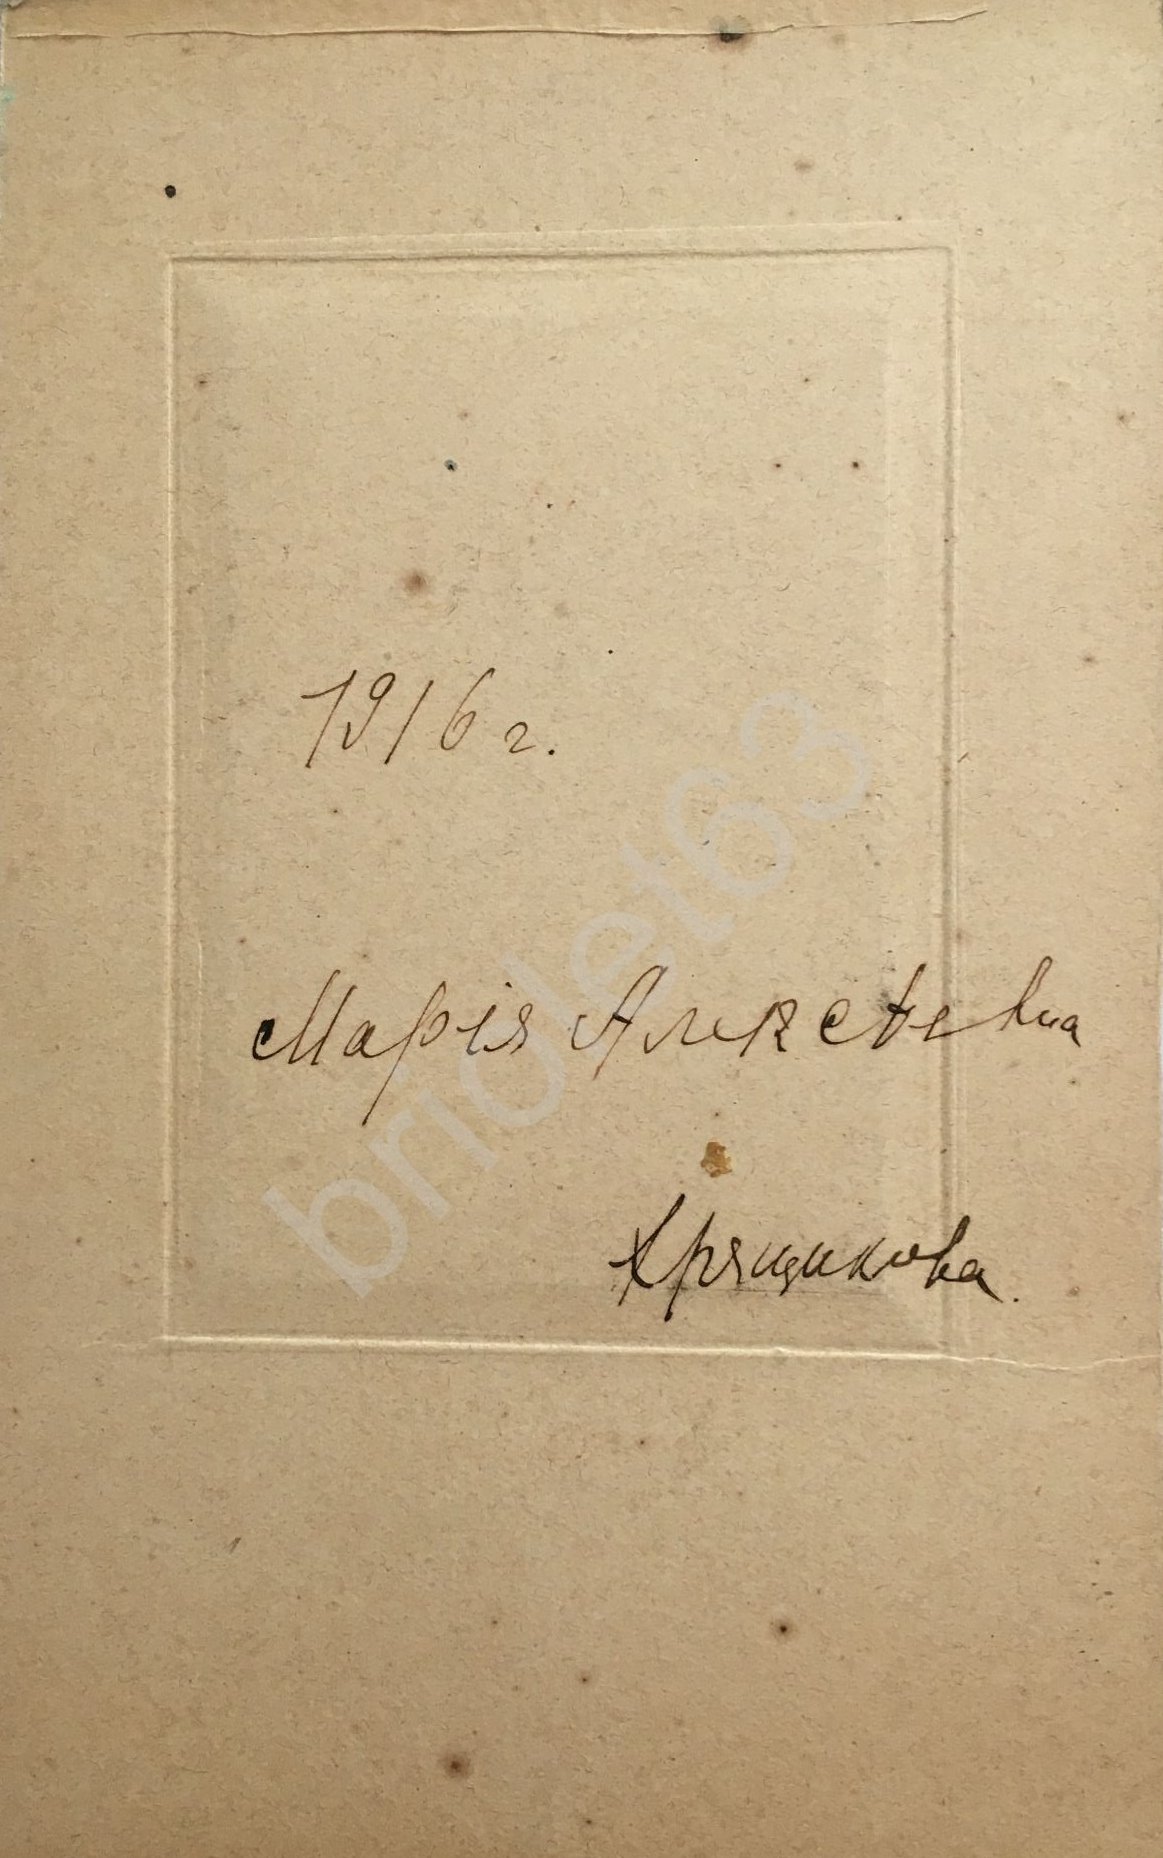 1916 г.
Марія Алексѣевна
Хрящикова.
bridlet63